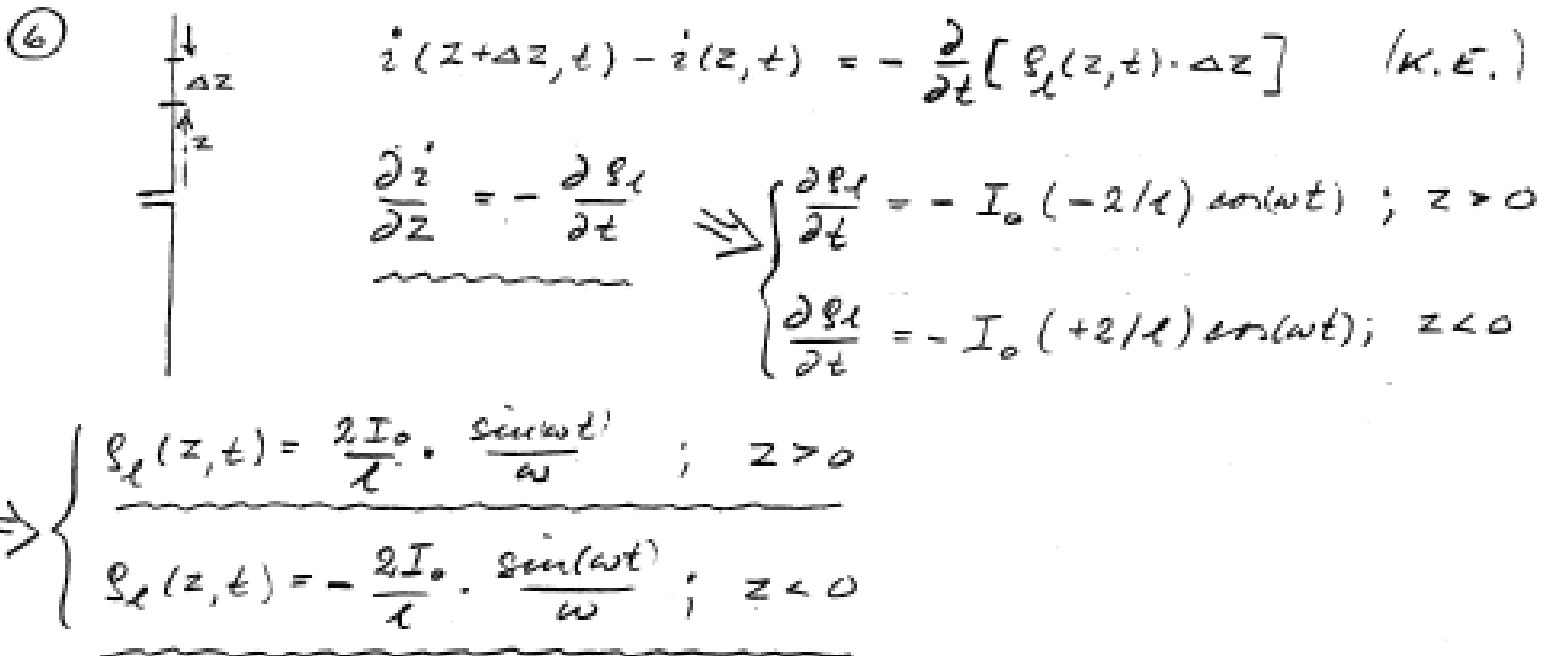 6
Δz
z
i(z+Δz,t) - i(z,t) = - ∂/∂t [ρₗ(z,t)·Δz] (K.E.)
∂i/∂z = - ∂ρₗ/∂t ⇒ { ∂ρₗ/∂t = - I₀ (-2/l) cos(ωt) ; z > 0
∂ρₗ/∂t = - I₀ (+2/l) cos(ωt); z < 0
⇒ { ρₗ(z,t) = 2I₀/l · sin(ωt)/ω ; z > 0
ρₗ(z,t) = - 2I₀/l · sin(ωt)/ω ; z < 0